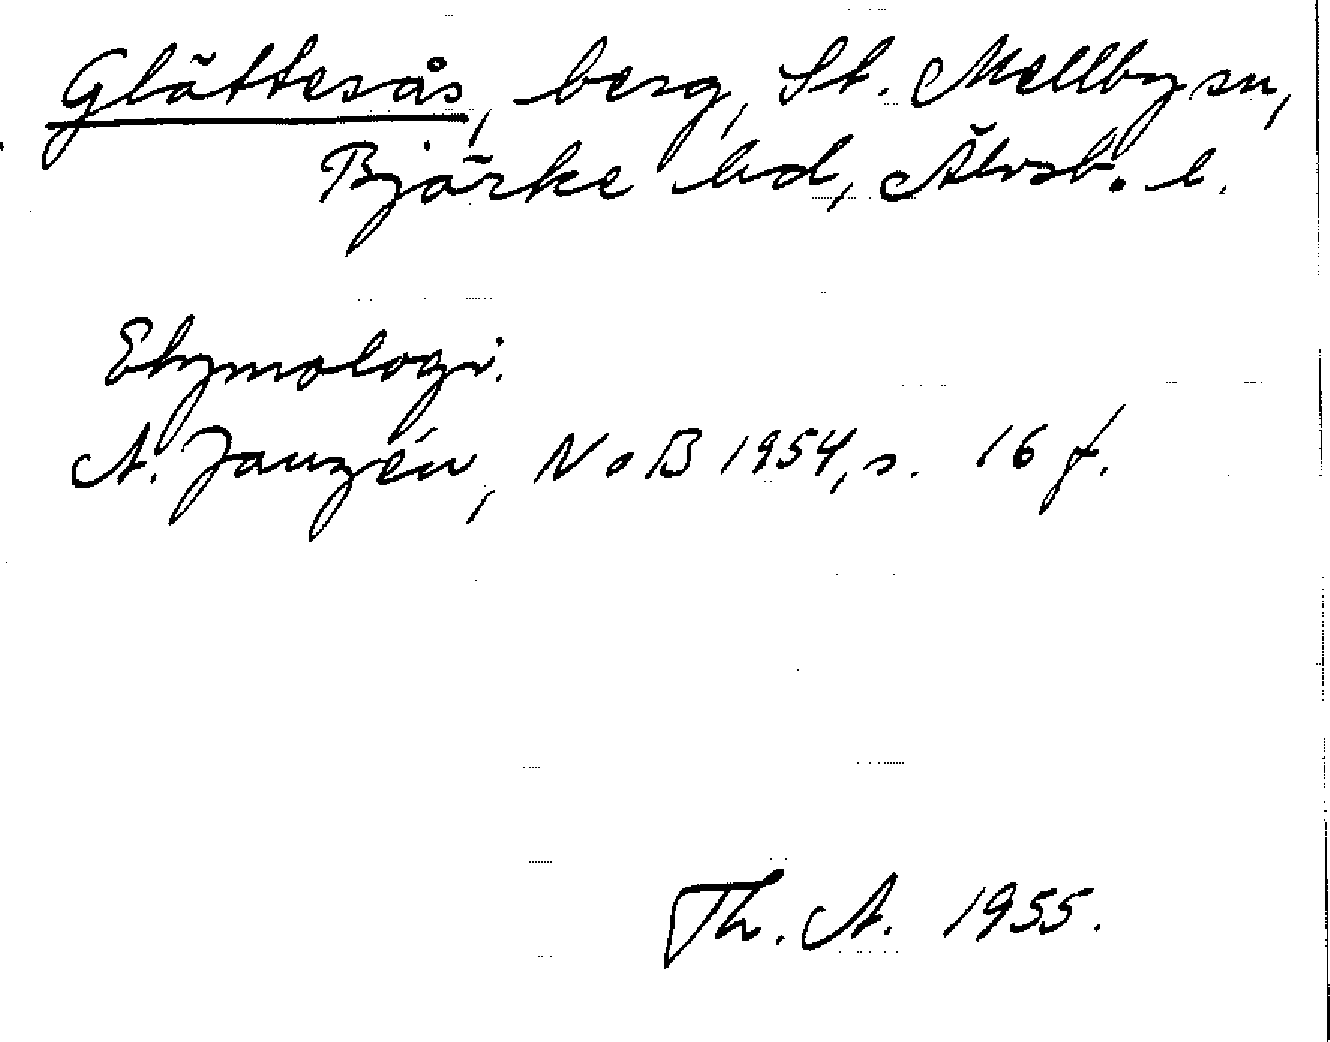 Glättesås, berg, St. Mellby sn,
Bjärke hd, Älvsb. l.
Etymologi.
A. Janzén, NoB 1954, s. 16 f.
Th. A. 1955.